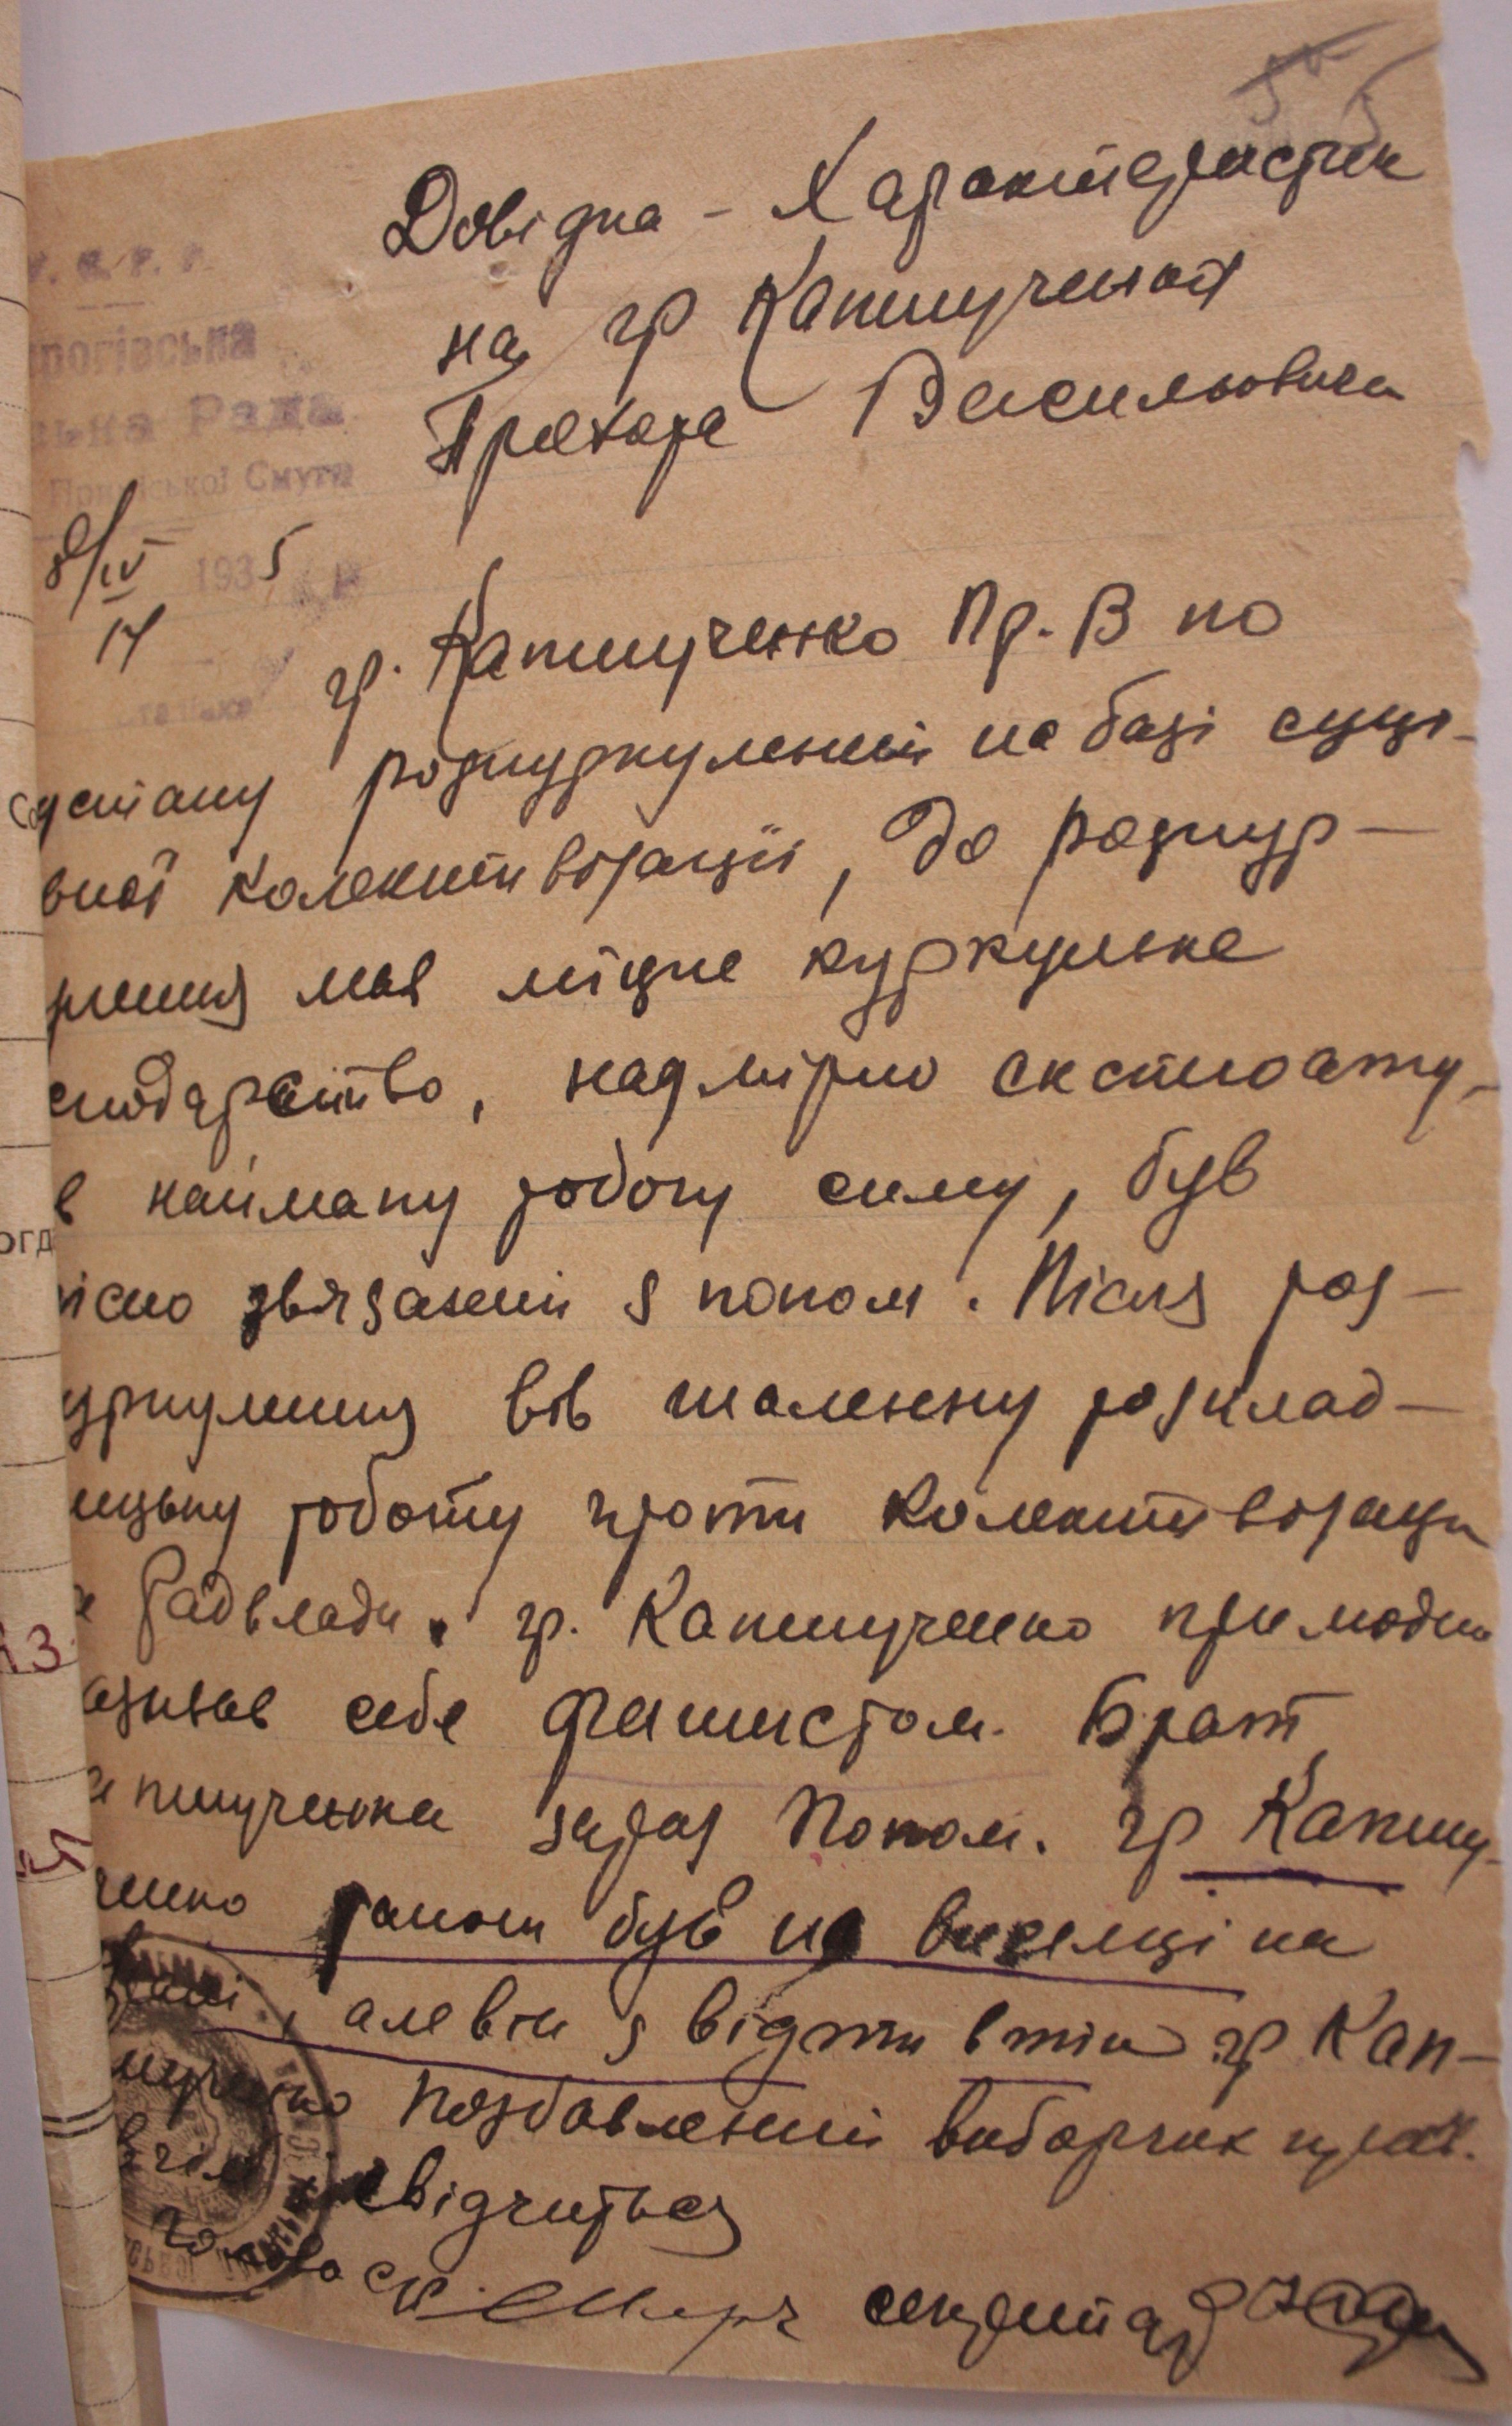 Довідка - Характеристик
на гр Капшученка
Прохора Васильовича
У. С. Р. Р.
рогівська
ська Рада
Смуги
8/IV 1935
14
гр. Капшученко Пр. В по
соцстану розкуркулений на базі суці-
вної колективізації, до розкур-
лення мав міцне куркульське
сподарство, надмірно експлоату-
в найману робочу силу, був
тісно звязаний з попом. Після роз-
уркулення вів шаленну розклад-
ницьку роботу проти колективізаціи
Радвлади. гр. Капшученко прилюдно
азивав себе фашистом. Брат
апшученка зараз Попом. гр Капшу-
ченко раніш був на виселці на
, але він з відти втік гр Кап-
шученко позбавлений виборчих прав.
в чім і свідчиться
Голова с/р секретар